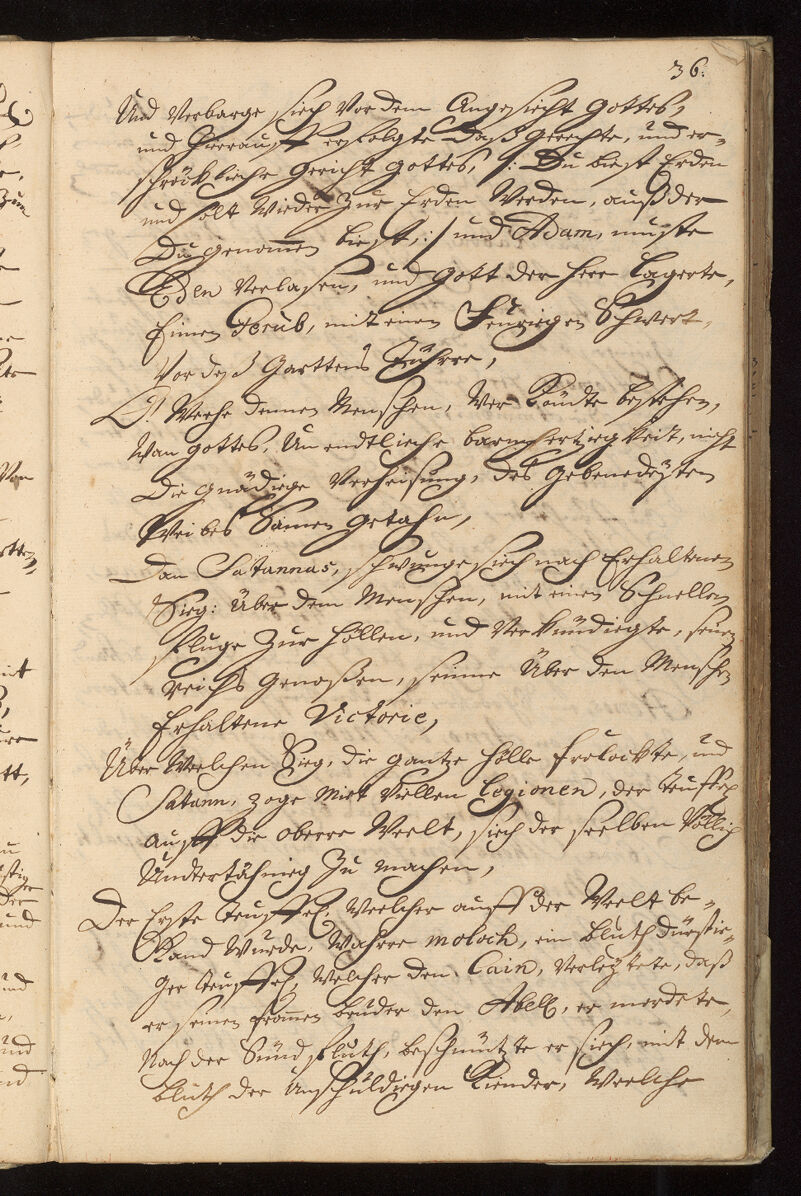 36.
Und Verbarge siech Vor dem Angesiecht Gottes,
und hierauff erfolgte daß gerechte, und er=
schröckhliche Gericht Gottes, /: Du biest Erden
und solt Wieder Zur Erden Werden, auß der
Du genomen biest, :/ und Adam, muste
Eden Verlasen, und Gott der Herr Lagerte,
Einen Perub, mit einen Feuriegen Schwert,
Vor deß Garttens Tührre,
O! Weehe dennen Menschen, Wer Köndte bestehen,
Wan Gottes, Un endtlieche barmhertziegkeit, nicht
Die gnädiege Verheisung, des Gebenedeyten
Weibes Samen getahn,
Dan Satannas, schwunge siech nach Erhaltenen
Sieg: Über dem Menschen, mit einen Schnellen
fluge Zur Höllen, und Verkündiegte, seinen
Reichs Genoßen, seinne Über den Menschen
Erhaltene Victorie,
Über Welchen Sieg, die gantze Hölle frolockte, und
Satann, zoge Miet Viellen Legionen, der Teuffel
auff die oberre Weelt, siech der seelben Völlig
Undertähnieg Zu machen,
Der Erste Teuffel, Weelcher auff der Weelt be=
Kand Wurde, Wahre moloch, ein bluth dürstie=
ger Teuffel, Welcher den Cain, Verleytete, daß
er seinen fromen bruder den Abell, er merdete,
Nach der Sündfluth, beschmützte er siech, mit dem
bluth der Unschuldiegen Kiender, Weelche